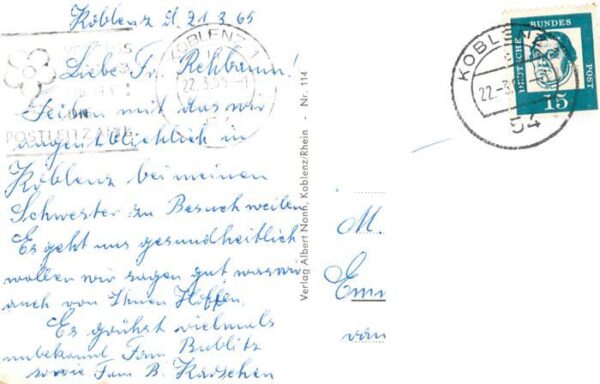 Koblenz d. 21.3.65
Liebe Fr. Rehbaum!
Teilen mit das wir
augenblicklich in
Koblenz bei meinen
Schwester zu Besuch weilen
Es geht uns gesundheitlich
wollen wir sagen gut was wir
auch von Ihnen Hoffen.
Es grühst vielmals
unbekannt Fam Bublitz
sowie Fam B. Kadschen
POSTLEITZAHL
KOBLENZ 1
22.3.65-1
Verlag Albert Nann, Koblenz/Rhein - Nr. 114
KOBLENZ
22.-3.
54
DEUTSCHE BUNDES POST
15
M.
Em
van